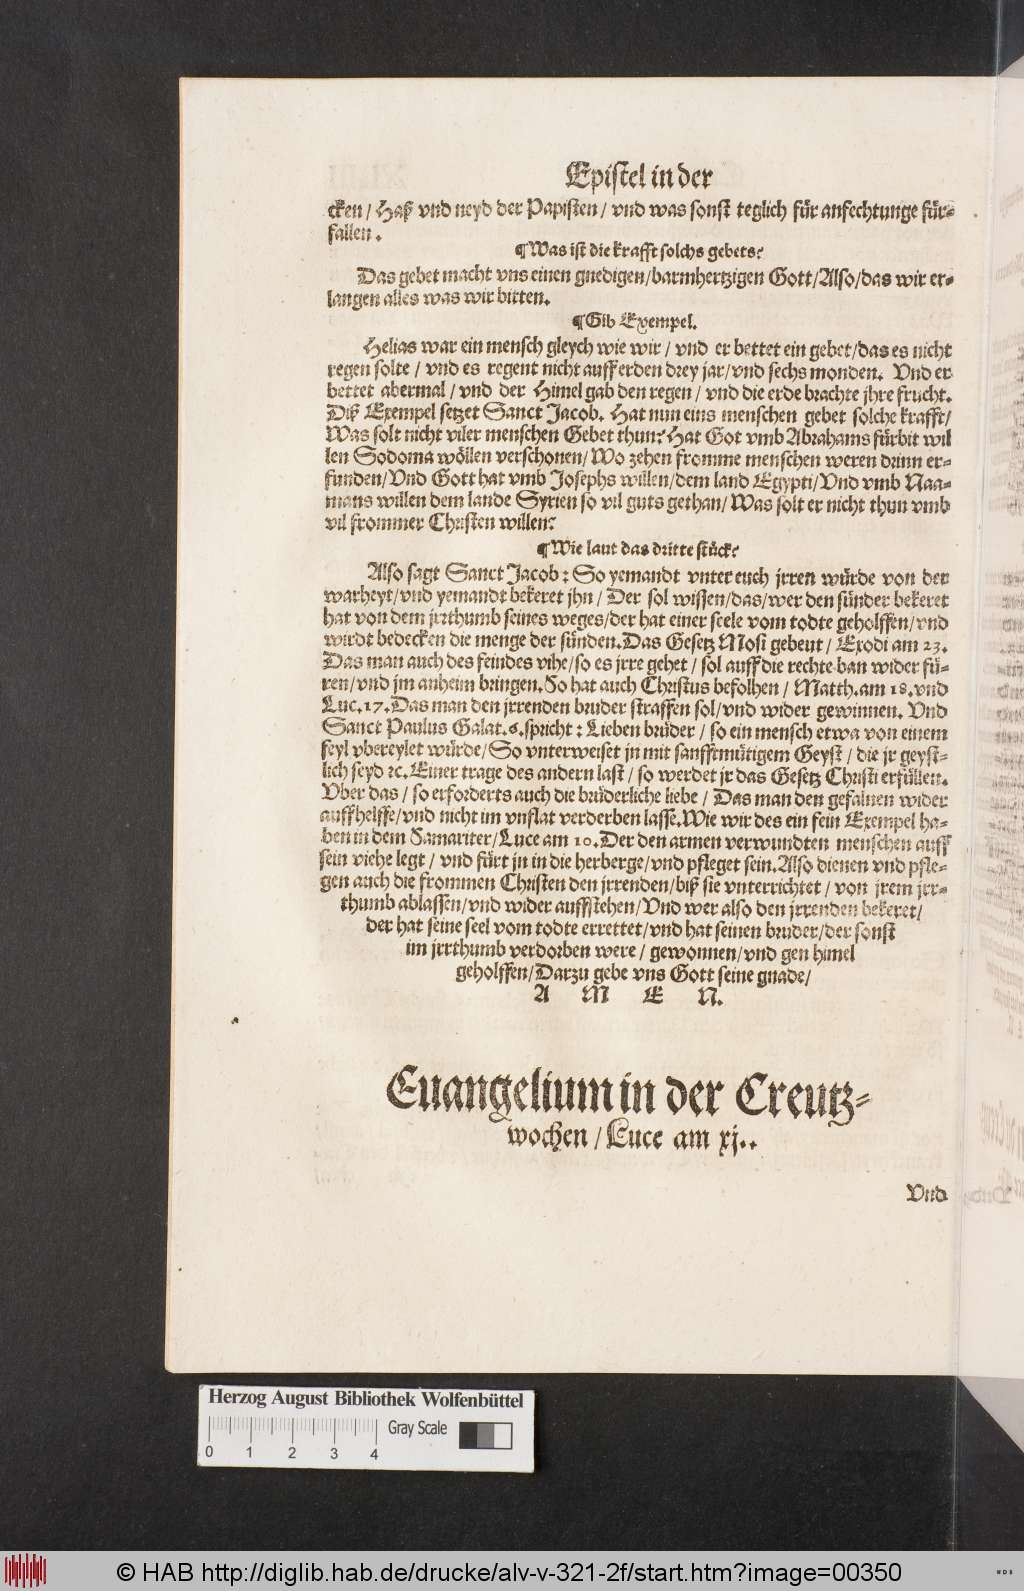 Epistel in der
cken / Haß vnd neyd der Papisten / vnd was sonst teglich für anfechtunge für-
fallen .
¶ Was ist die krafft solchs gebets?
Das gebet macht vns einen gnedigen/barmhertzigen Gott/Also/das wir er-
langen alles was wir bitten.
¶ Gib Exempel.
Helias war ein mensch gleych wie wir / vnd er bettet ein gebet/das es nicht
regen solte / vnd es regent nicht auff erden drey jar/vnd sechs monden. Vnd er
bettet abermal / vnd der Himel gab den regen / vnd die erde brachte jhre frucht.
Diß Exempel setzet Sanct Jacob. Hat nun eins menschen gebet solche krafft/
Was solt nicht viler menschen Gebet thun? Hat Got vmb Abrahams fürbit wil
len Sodoma wöllen verschonen/Wo zehen fromme menschen weren drinn er-
funden/Vnd Gott hat vmb Josephs willen/dem land Egypti/Vnd vmb Naa-
mans willen dem lande Syrien so vil guts gethan/Was solt er nicht thun vmb
vil frommer Christen willen?
¶ Wie laut das dritte stück?
Also sagt Sanct Jacob : So yemandt vnter euch jrren würde von der
warheyt/vnd yemandt bekeret jhn / Der sol wissen/das/wer den sünder bekeret
hat von dem jrrthumb seines weges/der hat einer seele vom todte geholffen/vnd
wirdt bedecken die menge der sünden.Das Gesetz Mosi gebeut / Exodi am 23.
Das man auch des feindes vihe/so es jrre gehet / sol auff die rechte ban wider fü-
ren/vnd jm anheim bringen.So hat auch Christus befolhen / Matth.am 18.vnd
Luc.17.Das man den jrrenden bruder straffen sol/vnd wider gewinnen. Vnd
Sanct Paulus Galat.6.spricht : Lieben brüder / so ein mensch etwa von einem
feyl vbereylet würde/So vnterweiset jn mit sanfftmütigem Geyst / die jr geyst-
lich seyd ꝛc.Einer trage des andern last / so werdet jr das Gesetz Christi erfüllen.
Vber das / so erforderts auch die brüderliche liebe / Das man den gefalnen wider
auffhelffe/vnd nicht im vnflat verderben lasse.Wie wir des ein fein Exempel ha-
ben in dem Samariter/Luce am 10.Der den armen verwundten menschen auff
sein viehe legt / vnd fürt jn in die herberge/vnd pfleget sein.Also dienen vnd pfle-
gen auch die frommen Christen den jrrenden/biß sie vnterrichtet / von jrem jrr-
thumb ablassen/vnd wider auffstehen/Vnd wer also den jrrenden bekeret/
der hat seine seel vom todte errettet/vnd hat seinen bruder/der sonst
im jrrthumb verdorben were / gewonnen/vnd gen himel
geholffen/Darzu gebe vns Gott seine gnade/
A M E N.
Euangelium in der Creutz-
wochen / Luce am xj..
Vnd
Herzog August Bibliothek Wolfenbüttel
Gray Scale
0 1 2 3 4
© HAB http://diglib.hab.de/drucke/alv-v-321-2f/start.htm?image=00350